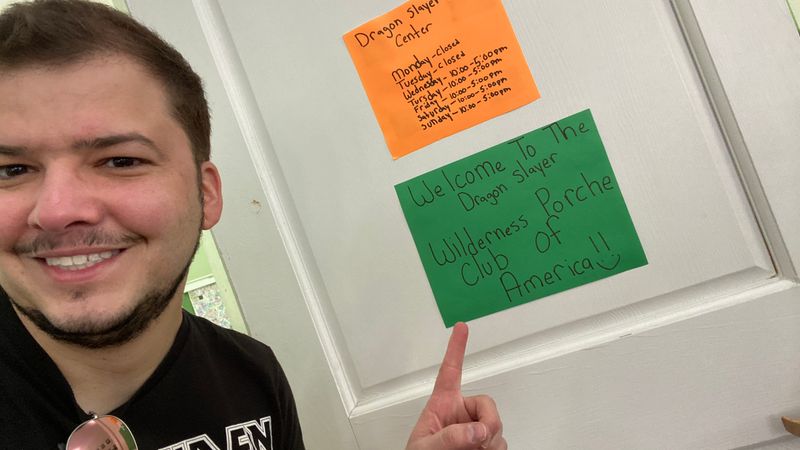 Dragon Slayer
Center
Monday-closed
Tuesday-closed
Wednesday-10:00-5:00pm
Tursday-10:00-5:00pm
Friday-10:00-5:00pm
Saturday-10:00-5:00pm
Sunday-10:00-5:00pm
Welcome To The
Dragon Slayer
Wilderness Porche
Club Of
America!!